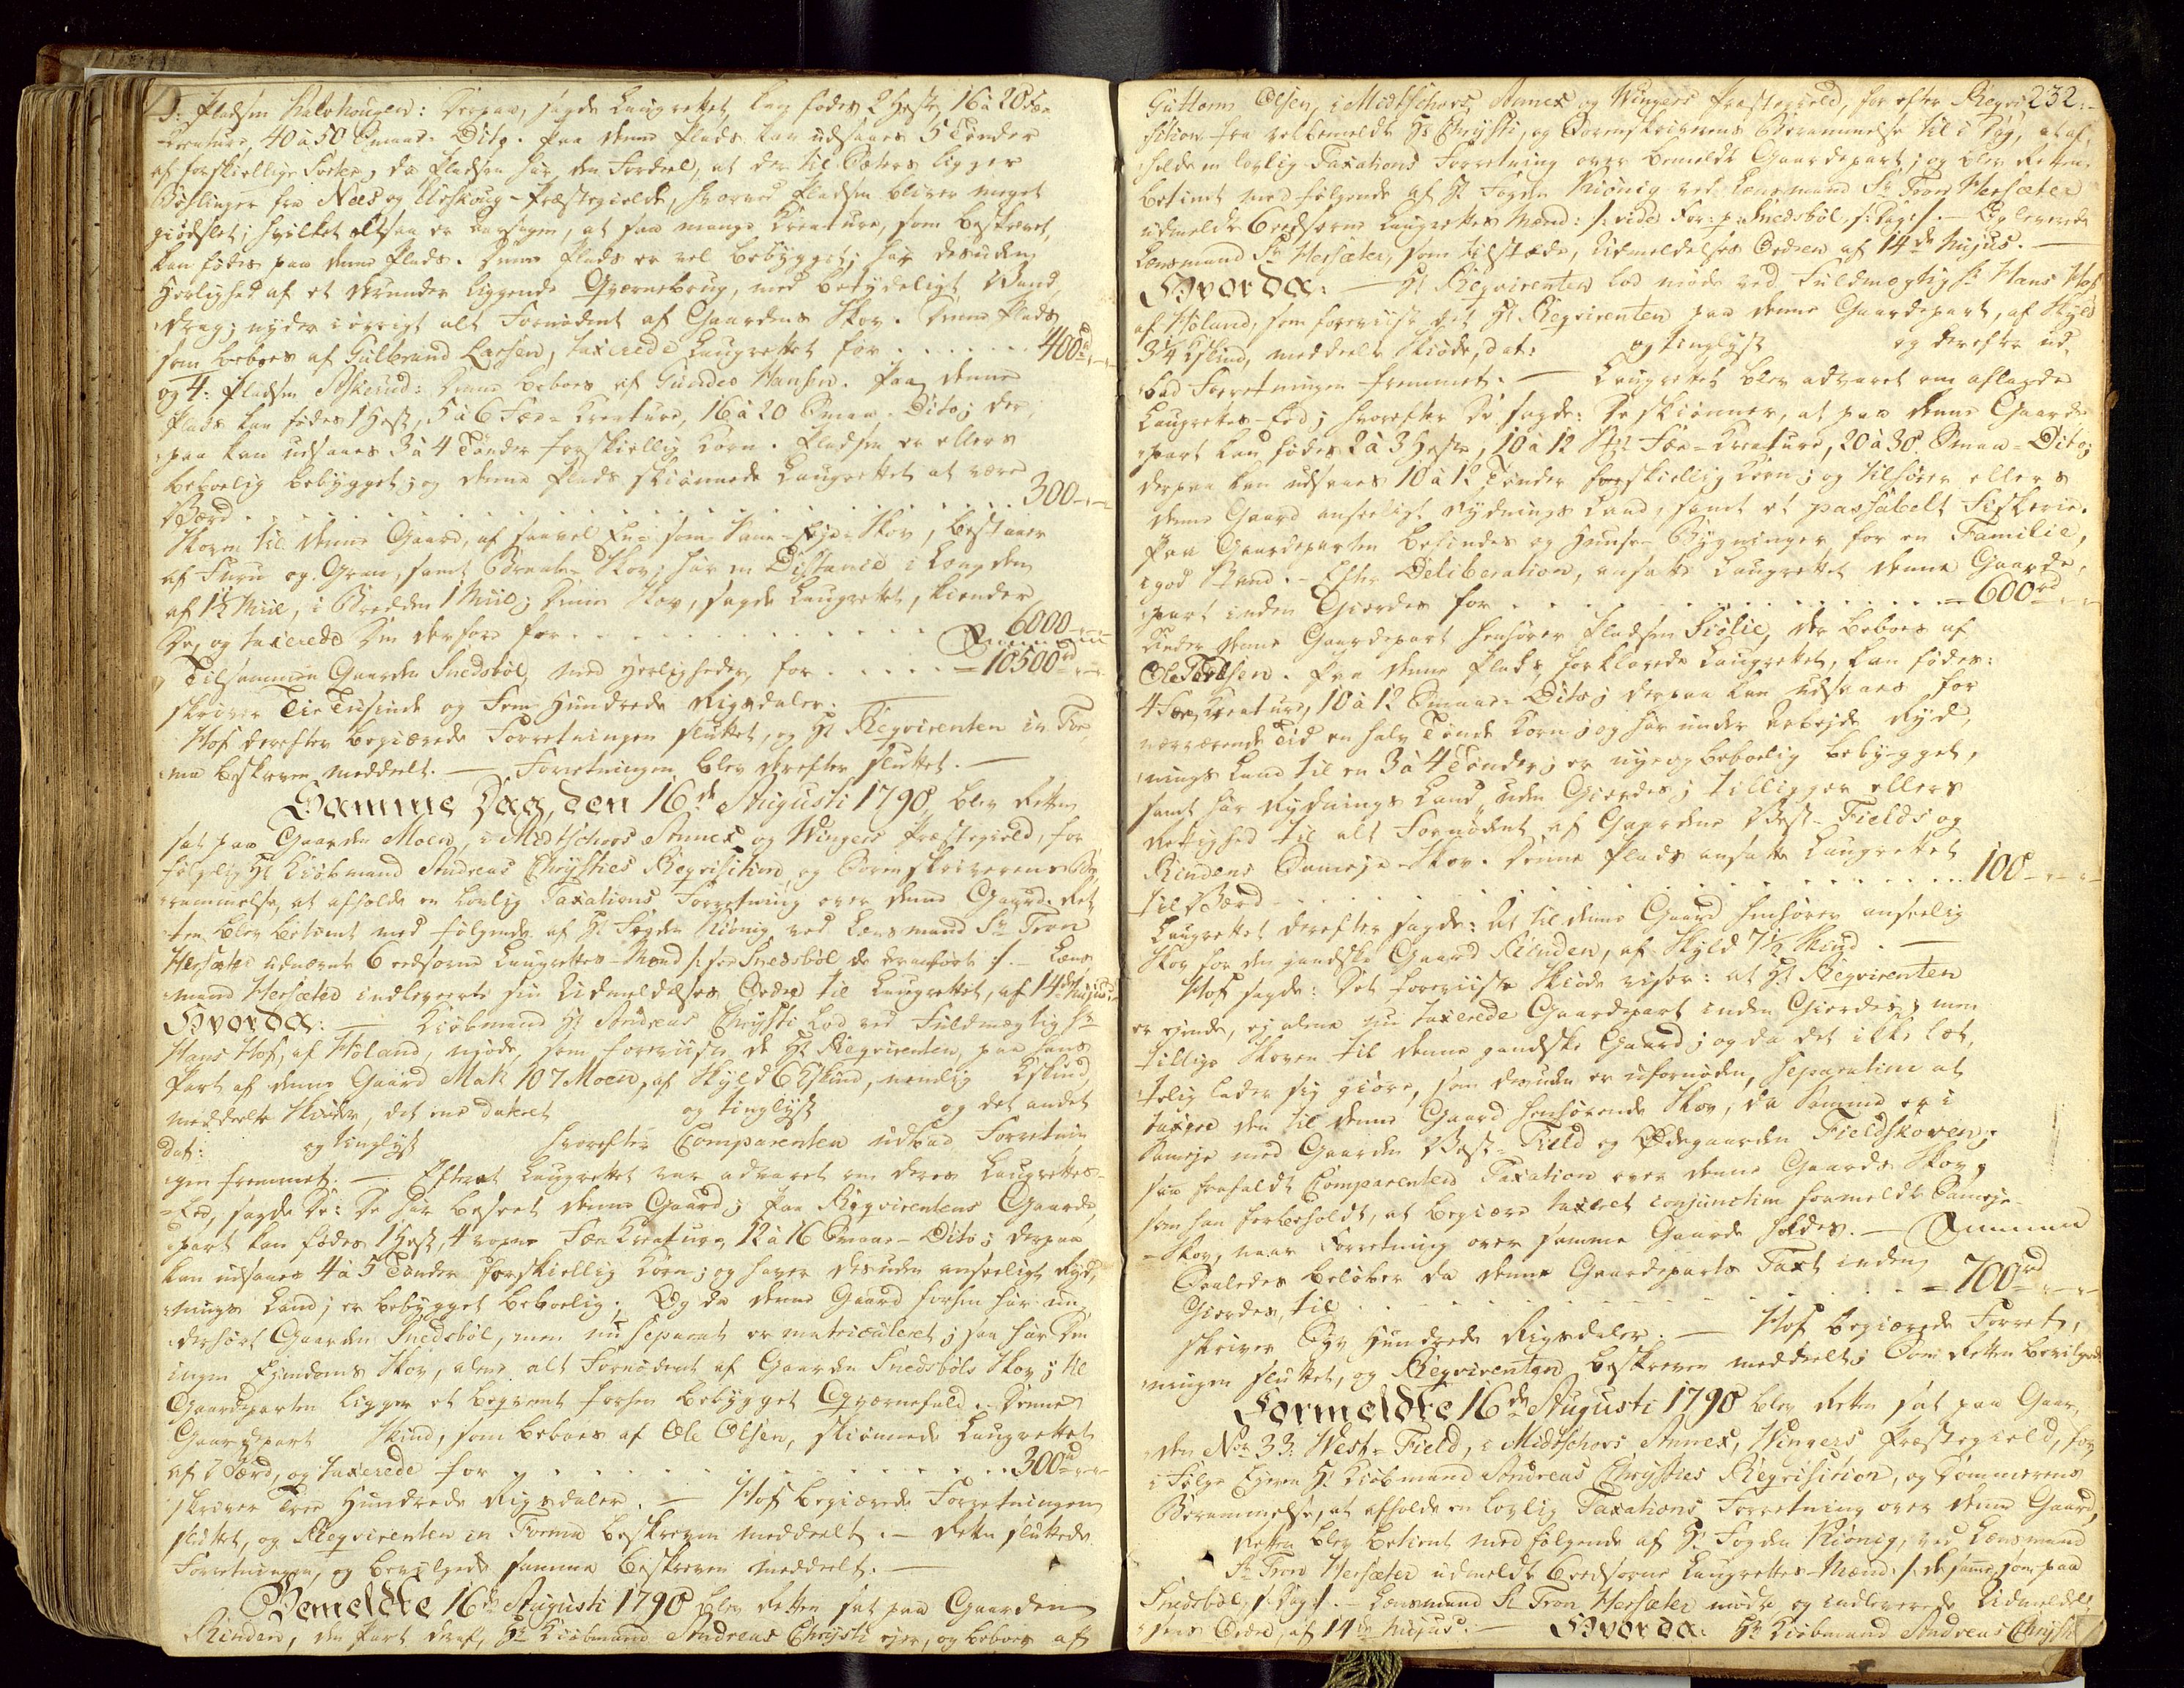 3: Pladsen Halvhougen: Derpaa, sagde Laugrettet, kan fødes 2 Heste, 16 à 20 Fæ
Creature, 40 à 50 Smaae-Dito. Paa denne Plads kan udsaaes 5 Tønder
af forskiellige Sorter, da Pladsen har den Fordeel, at der til Sæters ligger
Bøslinger fra Næs og Urskoug-Præstegield, hvorved Pladsen bliver meget
giødslet; hvilket altsaa er Aarsagen, at saa mange Creature, som beskrevet,
kan fødes paa denne Plads. Denne Plads er vel bebygget; har desuden
Herlighed af et derunder liggende Qværnebrug, med betydeligt Vand-
drag; nyder iøvrigt alt Fornødent af Gaardens Skov. Denne Plads
som beboes af Gulbrand Larsen, taxerede Laugrettet for . . . . . . 400 rd
og 4: Pladsen Askerud: Denne beboes af Gunder Hansen. Paa denne
Plads kan fødes 1 Hest, 5 à 6 Fæe-Creature, 16 à 20 Smaae-Dito; der-
paa kan udsaaes 3 à 4 Tønder forskiellig Korn. Pladsen er ellers
beboelig bebygget; og denne Plads skiønnede Laugrettet at være
Værd . . . . . . . . . . 300
Skoven til denne Gaard, af saavel som Sam-Eje-Skov, bestaaer
af Furu og Gran, samt Brænde-Skov; har en Distance i Længden
af 1½ Miil, i Bredden 1 Miil; Denne Skov, sagde Laugrettet, kiender
De, og taxerede Den derfore for . . . . . . 6000
Summa
Tilsammen Gaarden Snedsbøl, med Herligheder, for . . . . 10500 rd
skriver Tie Tusinde og Fem Hundrede Rigsdaler.
Hof derefter begiærede Forretningen sluttet, og Hr Reqvirenten in For-
ma beskreven meddeelt. — Forretningen blev derefter sluttet. —
Samme Dag, den 16de Augusti 1790 blev Retten
sat paa Gaarden Moen, i Midtschovs Annex og Wingers Præstegield, for
følgelig Hr Kiøbmand Andreas Chrysties Reqvisition, og Sorenskriverens Be-
rammelse, at afholde en lovlig Taxations Forretning over denne Gaard. Ret-
ten blev betient med følgende af Hr Fogden Kiønig ved Lensmand Sr Tron
Hersæter udnævnte 6 eedsorne Laugrettes-Mænd /: see Snedsbøl de anførte :/. — Lens-
mand Hersæter indleverte sin Udmeldelses Ordre til Laugrettet, af 14de hujus.
Hvorda: — Kiøbmand Hr Andreas Chrysti lod ved Fuldmægtig Sr
Hans Hof, af Høland, møde, som foreviiste de Hr Reqvirenten, paa hans
Part af denne Gaard Matr 107 Moen, af Skyld 6 Skind, nemlig Skind,
meddeelte Skiøder, det ene dateret og tinglyst og det andet
dat: og tinglyst hvorefter Comparenten udbad Forretnin-
gen fremmet. — Efterat Laugrettet var advaret om deres Laugrettes-
Eed, sagde De: De har beseet denne Gaard; paa Reqvirentens Gaarde-
part kan fødes 1 Hest, 4 voxne Fæe Creature, 12 à 16 Smaae-Dito; derpaa
kan udsaaes 4 à 5 Tønder forskiellig Korn; og haver desuden anseeligt Ryd-
nings Land; er bebygget beboelig; Og da denne Gaard forhen har un-
derhørt Gaarden Snedsbøl, men nu separat er matriculeret; saa har Den
ingen Ejendoms Skov, alene alt Fornødent af Gaarden Snedsbøls Skov; til
Gaardeparten ligger et beqvemt forhen bebygget Qværnefald. Denne
Gaardpart Skind, som beboes af Ole Olsen, skiønnede Laugrettet
af Værd, og taxerede for . . . . . . . . 300 rd
skriver Tree Hundrede Rigsdaler. — Hof begiærede Forretningen
sluttet, og Reqvirenten in Forma beskreven meddeelt. — Retten sluttede
Forretningen, og bevilgede samme beskreven meddeelt. —
Bemeldte 16de Augusti 1790 blev Retten sat paa Gaarden
Rinden, den Part deraf, Hr Kiøbmand Andreas Chrysti ejer, og beboes af
232.
Guttorm Olsen, i Midtschovs Annex og Wingers Præstegield, for efter Reqvi-
sition fra velbemeldte Hr Chrysti, og Sorenskriverens Berammelse til i Dag, at af-
holde en lovlig Taxations Forretning over bemeldte Gaardepart; og blev Retten
betient med følgende af Hr Fogden Kiønig ved Lensmand Sr Tron Hersæter
udmeldte 6 eedsorne Laugrettes Mænd: /: vide For: p: Snedsbøl, s: Dag :/. — leverede
Lensmand Sr Hersæter, som tilstæde, Udmeldelses Ordren af 14de hujus. —
Hvorda: — Hr Reqvirenten lod møde ved Fuldmægtig Sr Hans Hof
af Høland, som foreviiste det Hr Reqvirenten paa denne Gaardepart, af Skyld
3¼ Skind, meddeelte Skiøde, dat: og tinglyst og derefter ud-
bad Forretningen fremmet. — Laugrettet blev advaret om aflagde
Laugrettes-Eed; hvorefter De sagde: De skiønner, at paa denne Gaarde-
part kan fødes 2 à 3 Heste, 10 à 12 Stk Fæe-Creature, 20 à 30 Smaae-Dito;
derpaa kan udsaaes 10 à 12 Tønder forskiellig Korn; og tilhører ellers
denne Gaard anseeligt Rydnings Land, samt et passabelt Fiskerie.
Paa Gaardeparten befindes og Huuse-Bygninger for en Familie,
i god Stand. — Efter Deliberation, ansatte Laugrettet denne Gaarde-
part inden Gierdes for . . . . . . . . 600 rd
Under denne Gaardepart henhører Pladsen Siølie, der beboes af
Ole Torresen. Paa denne Plads, forklarede Laugrettet, kan fødes:
4 Fæe-Creature, 10 à 12 Smaae-Dito; derpaa kan udsaaes for
nærværende Tid en halv Tønde Korn; og har under Arbejde Ryd-
nings Land til en 3 à 4 Tønder; er nye og beboelig bebygget,
samt har Rydnings Land uden Gierdes; tilligger ellers
Rettighed til alt Fornødent af Gaardene Vest-Fields og
Rindens Sameje-Skov. Denne Plads ansatte Laugrettet
til Værd . . . . . . . . 100
Laugrettet derefter sagde: At til denne Gaard henhører anseelig
Skov for den gandske Gaard Rinden, af Skyld 7½ Skind. —
Hof sagde: Det foreviiste Skiøde viser: at Hr Reqvirenten
er ejende, ej alene nu taxerede Gaardepart inden Gierdes; men
tillige Skoven til denne gandske Gaard; og da det ikke let-
telig lader sig giøre, som desuden er ufornøden, separatim at
taxere den til denne Gaard henhørende Skov, da Samme er i
Sameje med Gaarden Vest-Field og Ødegaarden Fieldskoven;
saa frafaldt Comparenten Taxation over denne Gaards Skov,
som han forbeholdt, at begiære taxeret conjunctim formeldte Sameje-
Skov, naar Forretning over samme Gaarde holdes. — Summa
Saaledes beløber da denne Gaardeparts Taxt inden
Gierdes, til . . . . . . . . 700 rd
skriver Syv Hundrede Rigsdaler. — Hof begiærede Forret-
ningen sluttet, og Reqvirenten beskreven meddeelt; Som Retten bevilgede.
Formeldte 16de Augusti 1790 blev Retten sat paa Gaar-
den No 33. West-Field, i Midtschovs Annex, Wingers Præstegield, for
i Følge Ejeren Hr Kiøbmand Andreas Chrysties Reqvisition, og Dommerens
Berammelse, at afholde en lovlig Taxations Forretning over denne Gaard;
Retten blev betient med følgende af Hr Fogden Kiønig, ved Lensmand
Sr Tron Hersæter udmeldte 6 eedsorne Laugrettes-Mænd: /: de samme som paa
Snedsbøl, s: Dag :/. — Lensmand Sr Tron Hersæter mødte og indleverede Udmeldel-
sens Ordre, af 14de hujus. — Hvorda: Hr Kiøbmand Andreas Chrysti